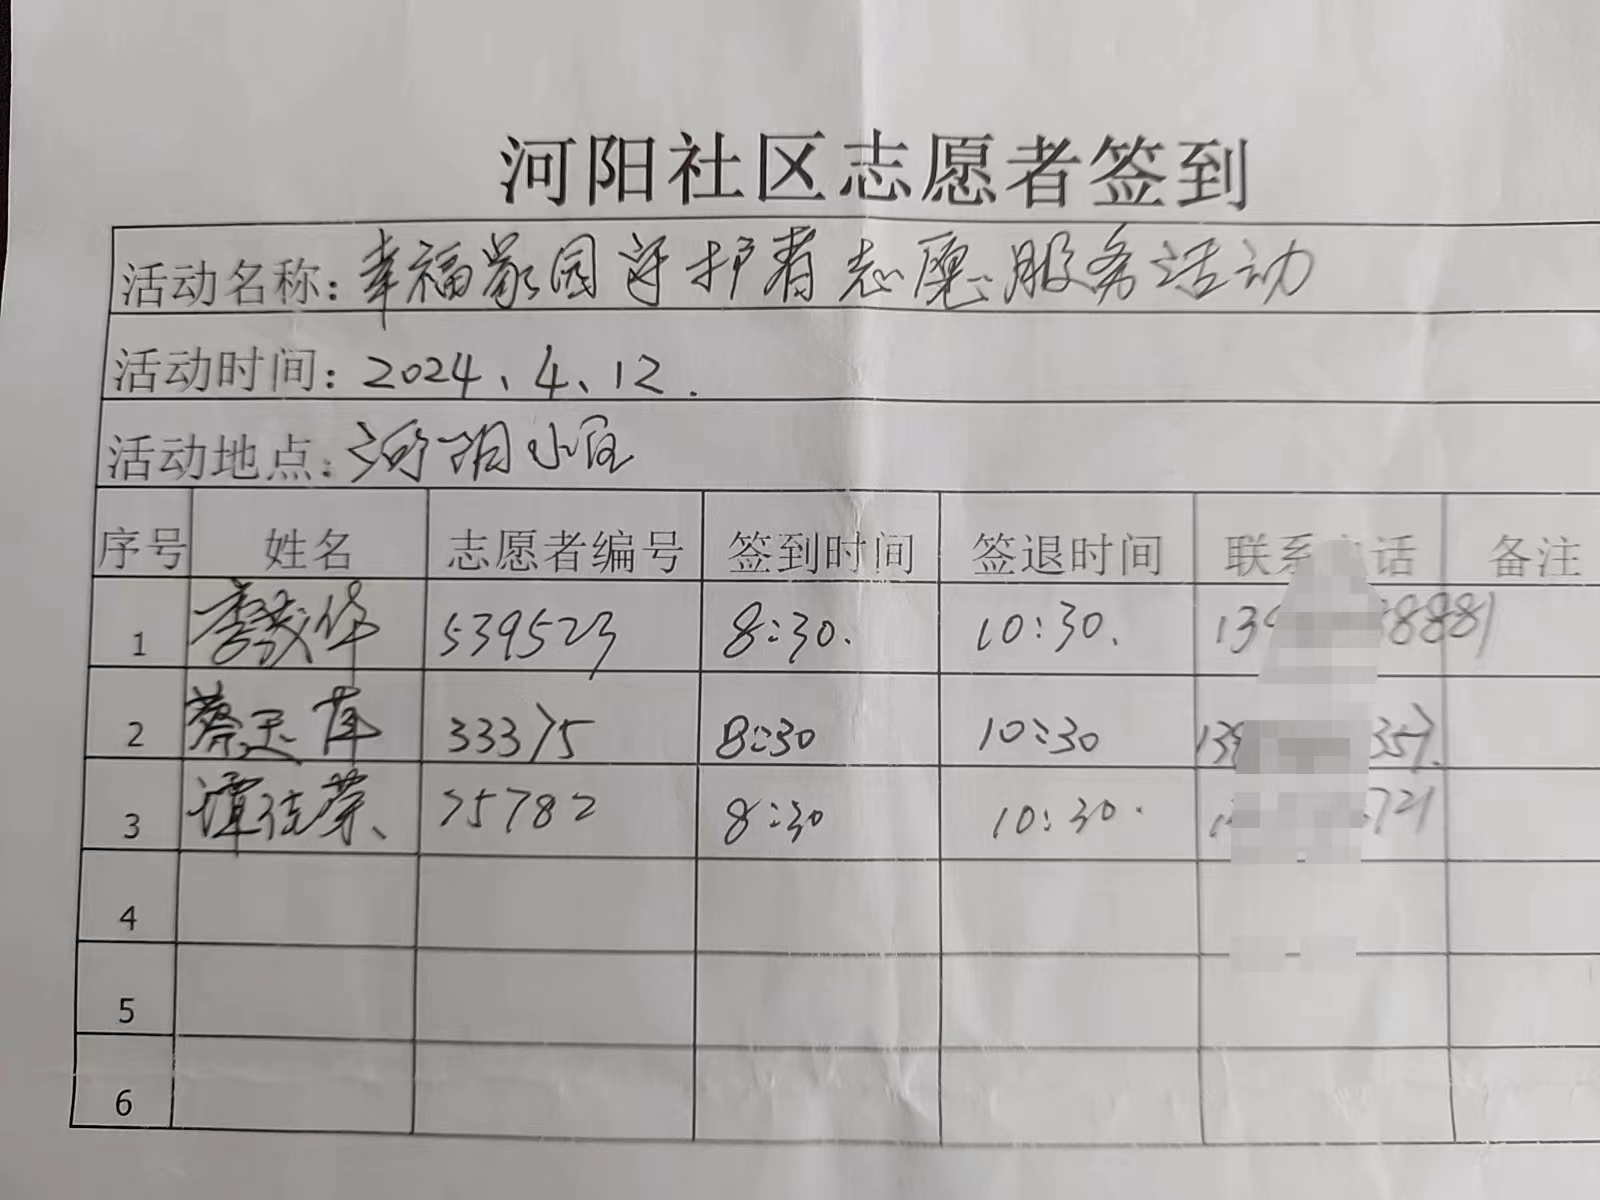 河阳社区志愿者签到
活动名称：幸福家园守护者志愿服务活动
活动时间：2024、4、12.
活动地点：河阳小区
序号 姓名 志愿者编号 签到时间 签退时间 联系电话 备注
1 李茂华 539523 8:30. 10:30. 139 8881
2 蔡 33375 8:30 10:30 139 357.
3 谭佳荣、 75782 8:30 10:30. 1 721
4
5
6